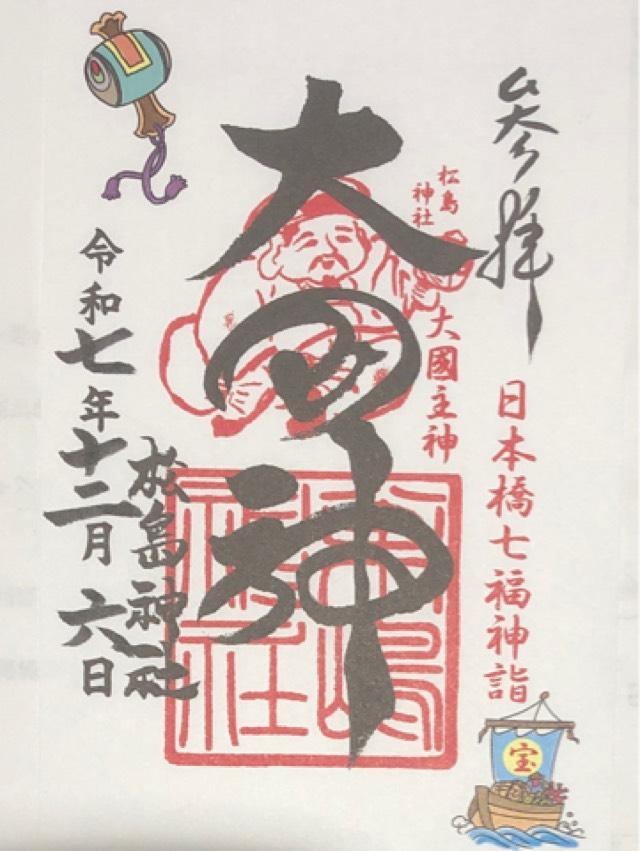 参拝
日本橋七福神詣
宝
松島
神社
大國主神
大国神
松島神社
松島神社
令和七年十二月六日